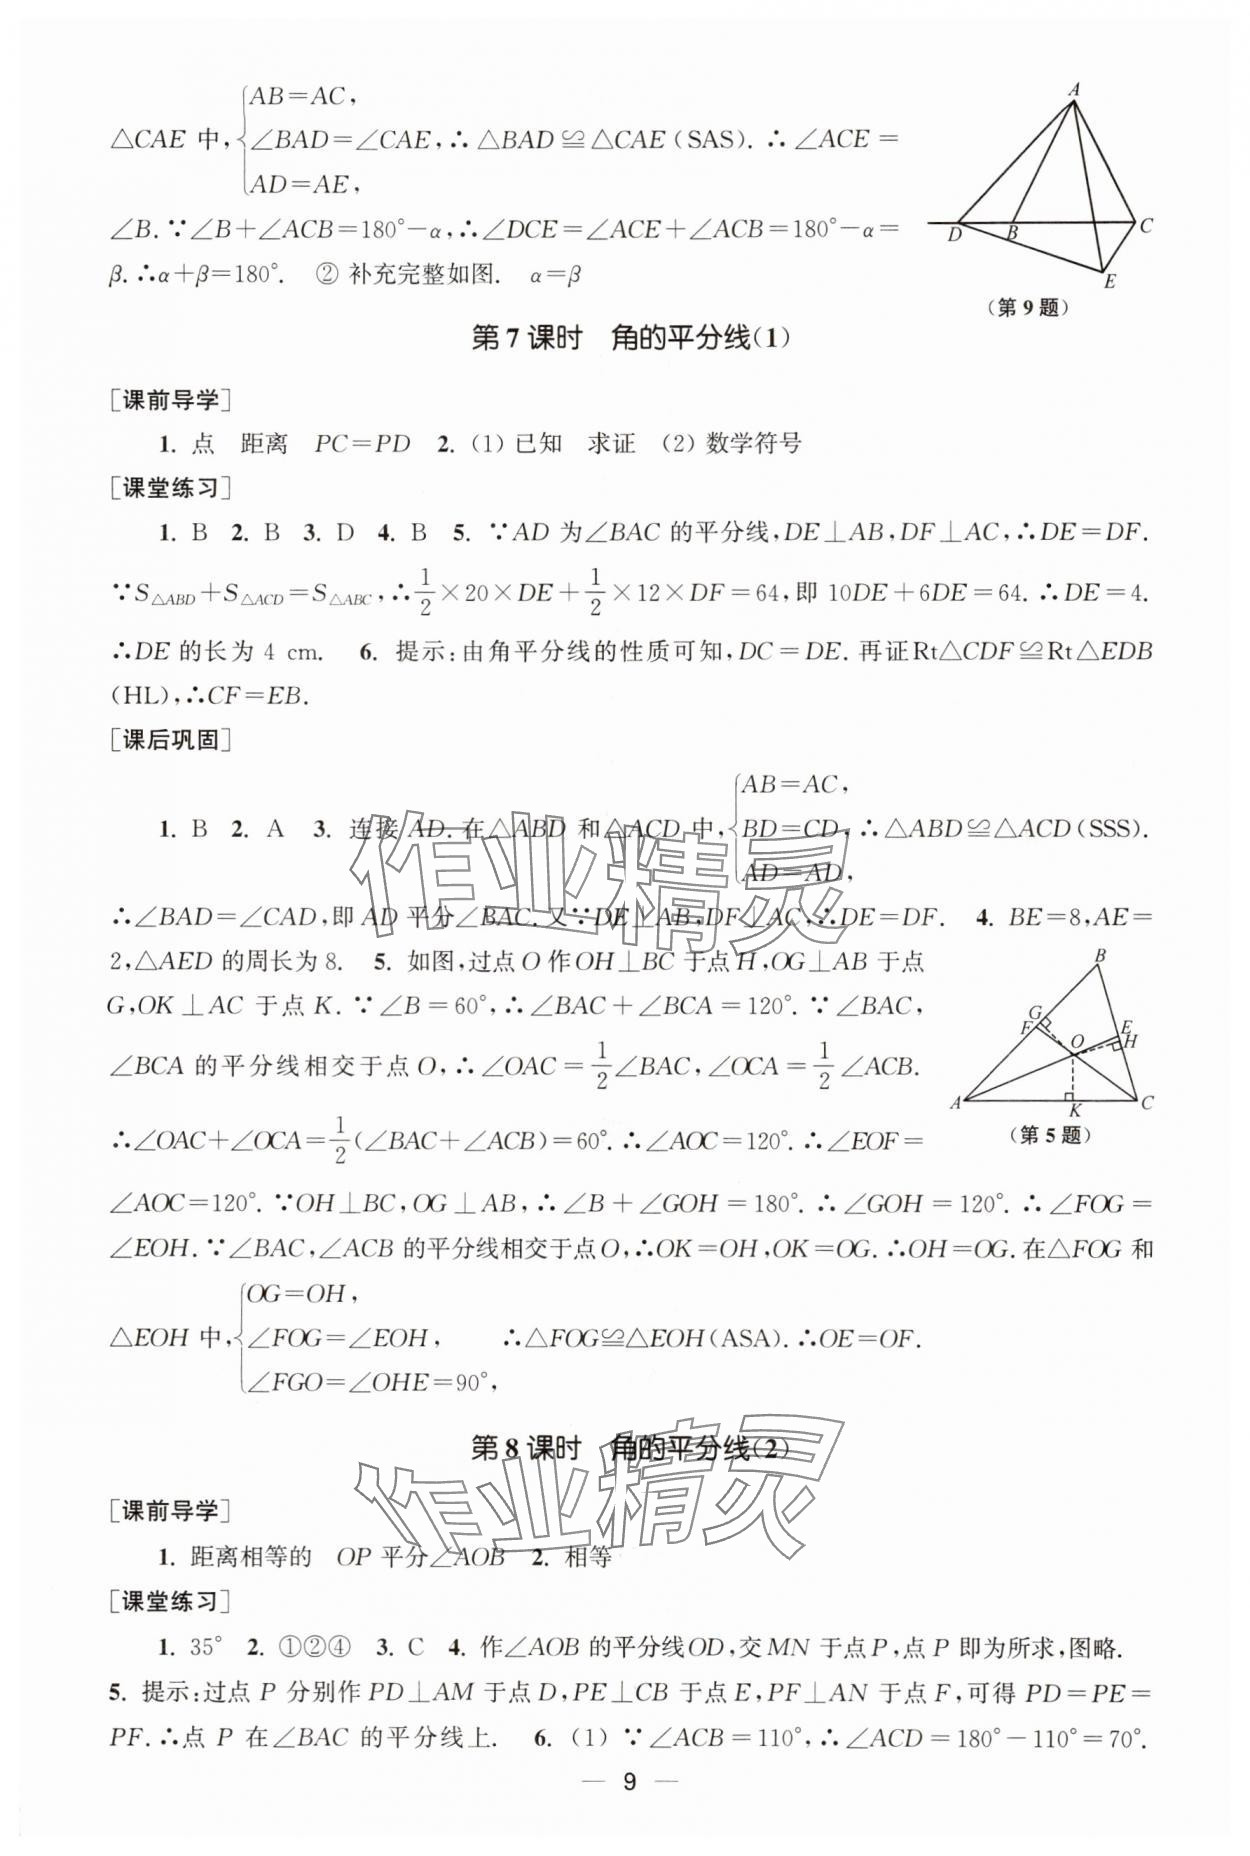 △CAE 中,{AB=AC,
∠BAD=∠CAE,∴△BAD≌△CAE(SAS).∴∠ACE=
AD=AE,
∠B.∵∠B+∠ACB=180°-α,∴∠DCE=∠ACE+∠ACB=180°-α=
β.∴α+β=180°. ② 补充完整如图. α=β
A
D
B
C
E
(第9题)
第7课时 角的平分线(1)
[课前导学]
1. 点 距离 PC=PD 2. (1) 已知 求证 (2) 数学符号
[课堂练习]
1. B 2. B 3. D 4. B 5. ∵AD 为∠BAC 的平分线,DE⊥AB,DF⊥AC,∴DE=DF.
∵S△ABD+S△ACD=S△ABC,∴1/2×20×DE+1/2×12×DF=64,即 10DE+6DE=64.∴DE=4.
∴DE 的长为 4 cm. 6. 提示:由角平分线的性质可知,DC=DE.再证Rt△CDF≌Rt△EDB
(HL),∴CF=EB.
[课后巩固]
1. B 2. A 3. 连接 AD.在△ABD 和△ACD 中,{AB=AC,
BD=CD,∴△ABD≌△ACD(SSS).
AD=AD,
∴∠BAD=∠CAD,即 AD 平分∠BAC.又∵DE⊥AB,DF⊥AC,∴DE=DF. 4. BE=8,AE=
2,△AED 的周长为 8. 5. 如图,过点 O 作 OH⊥BC 于点 H,OG⊥AB 于点
G,OK⊥AC 于点 K.∵∠B=60°,∴∠BAC+∠BCA=120°.∵∠BAC,
∠BCA 的平分线相交于点 O,∴∠OAC=1/2∠BAC,∠OCA=1/2∠ACB.
B
G
F
E
H
O
A
K
C
(第5题)
∴∠OAC+∠OCA=1/2(∠BAC+∠ACB)=60°.∴∠AOC=120°.∴∠EOF=
∠AOC=120°.∵OH⊥BC,OG⊥AB,∴∠B+∠GOH=180°.∴∠GOH=120°.∴∠FOG=
∠EOH.∵∠BAC,∠ACB 的平分线相交于点 O,∴OK=OH,OK=OG.∴OH=OG.在△FOG 和
△EOH 中,{OG=OH,
∠FOG=∠EOH, ∴△FOG≌△EOH(ASA).∴OE=OF.
∠FGO=∠OHE=90°,
第8课时 角的平分线(2)
[课前导学]
1. 距离相等的 OP 平分∠AOB 2. 相等
[课堂练习]
1. 35° 2. ①②④ 3. C 4. 作∠AOB 的平分线OD,交 MN 于点 P,点 P 即为所求,图略.
5. 提示:过点 P 分别作 PD⊥AM 于点 D,PE⊥CB 于点 E,PF⊥AN 于点 F,可得 PD=PE=
PF.∴点 P 在∠BAC 的平分线上. 6. (1) ∵∠ACB=110°,∴∠ACD=180°-110°=70°.
— 9 —
作业精灵
作业精灵